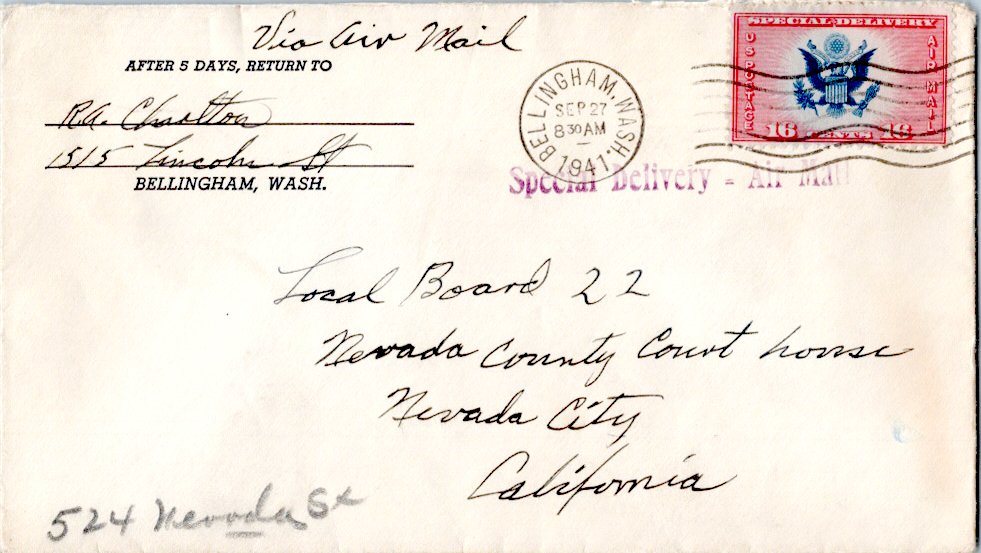 Via Air Mail
AFTER 5 DAYS, RETURN TO
R.A. Charlton
1515 Lincoln St
BELLINGHAM, WASH.
BELLINGHAM, WASH.
SEP 27
8 30 AM
1941
SPECIAL DELIVERY
U S POSTAGE
AIR MAIL
16 CENTS 16
Special Delivery - Air Mail
Local Board 22
Nevada County Court house
Nevada City
California
524 Nevada St